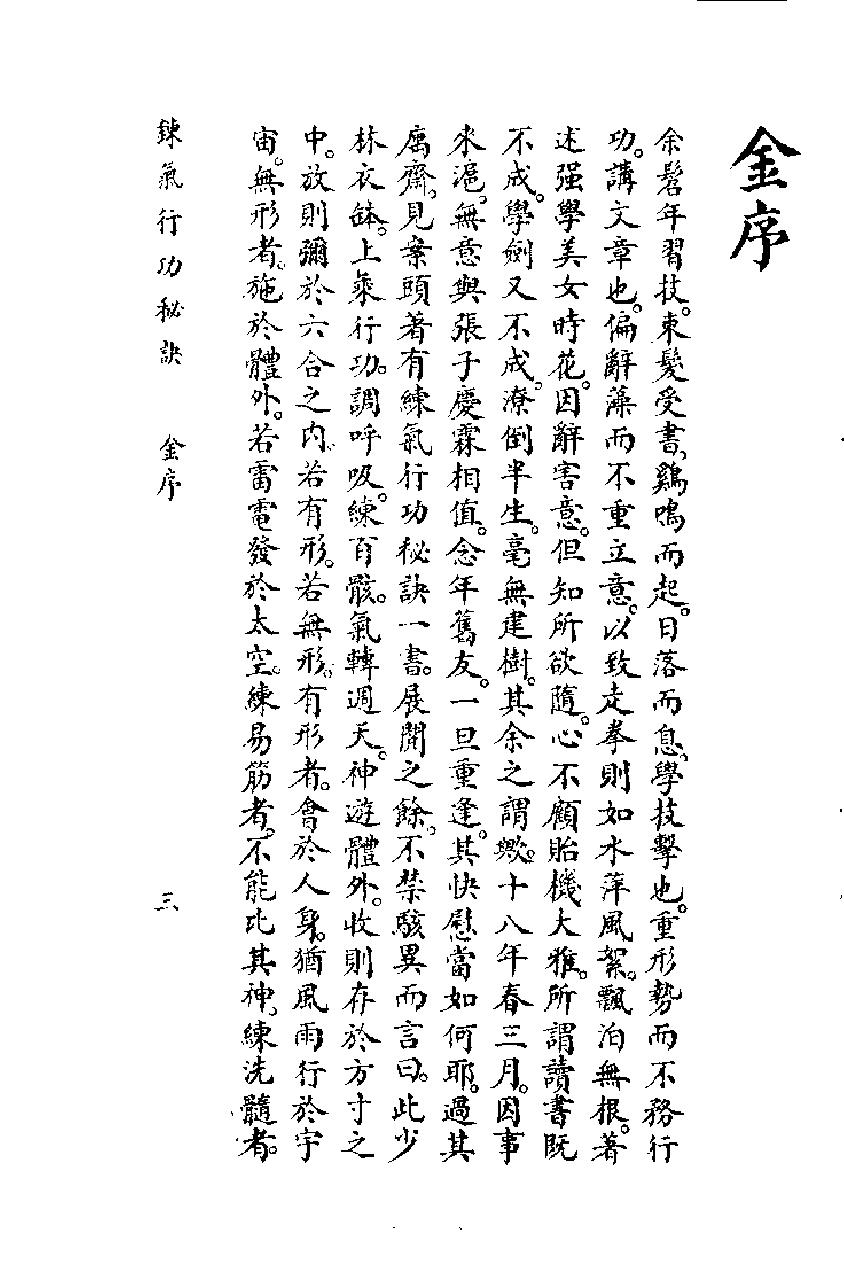 金序
余髫年習技。束髮受書、鷄鳴而起。日落而息、學技擊也。重形勢而不務行
功。講文章也。偏辭藻而不重立意。以致走拳則如水萍風絮。飄泊無根。著
述强學美女時花。因辭害意。但知所欲隨。心不顧貽機大雅。所謂讀書既
不成。學劍又不成。潦倒半生。毫無建樹。其余之謂歟。十八年春三月。因事
來滬。無意與張子慶霖相值。念年舊友。一旦重逢。其快慰當如何耶。過其
寓齋。見案頭著有練氣行功秘訣一書。展閱之餘。不禁駭異而言曰。此少
林衣缽。上乘行功。調呼吸。練百骸。氣轉週天。神遊體外。收則存於方寸之
中。放則彌於六合之內。若有形。若無形。有形者。會於人身。猶風雨行於宇
宙。無形者。施於體外。若雷電發於太空。練易筋者。不能比其神。練洗髓者。
鍊氣行功秘訣 金序 三